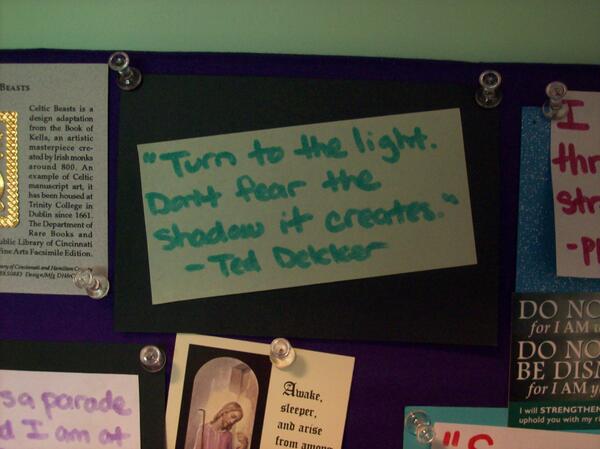 BEASTS
Celtic Beasts is a
design adaptation
from the Book of
Kells, an artistic
masterpiece cre-
ated by Irish monks
around 800. An
example of Celtic
manuscript art, it
has been housed at
Trinity College in
Dublin since 1661.
The Department of
Rare Books and
ublic Library of Cincinnati
Fine Arts Facsimile Edition.
of Cincinnati and Hamilton
"Turn to the light.
Don't fear the
shadow it creates."
- Ted Dekker
I
thr
str
DO NO
for I AM
DO NO
BE DISM
for I AM y
I will STRENGTHEN
uphold you with my ri
s a parade
d I am at
Awake,
sleeper,
and arise
from among